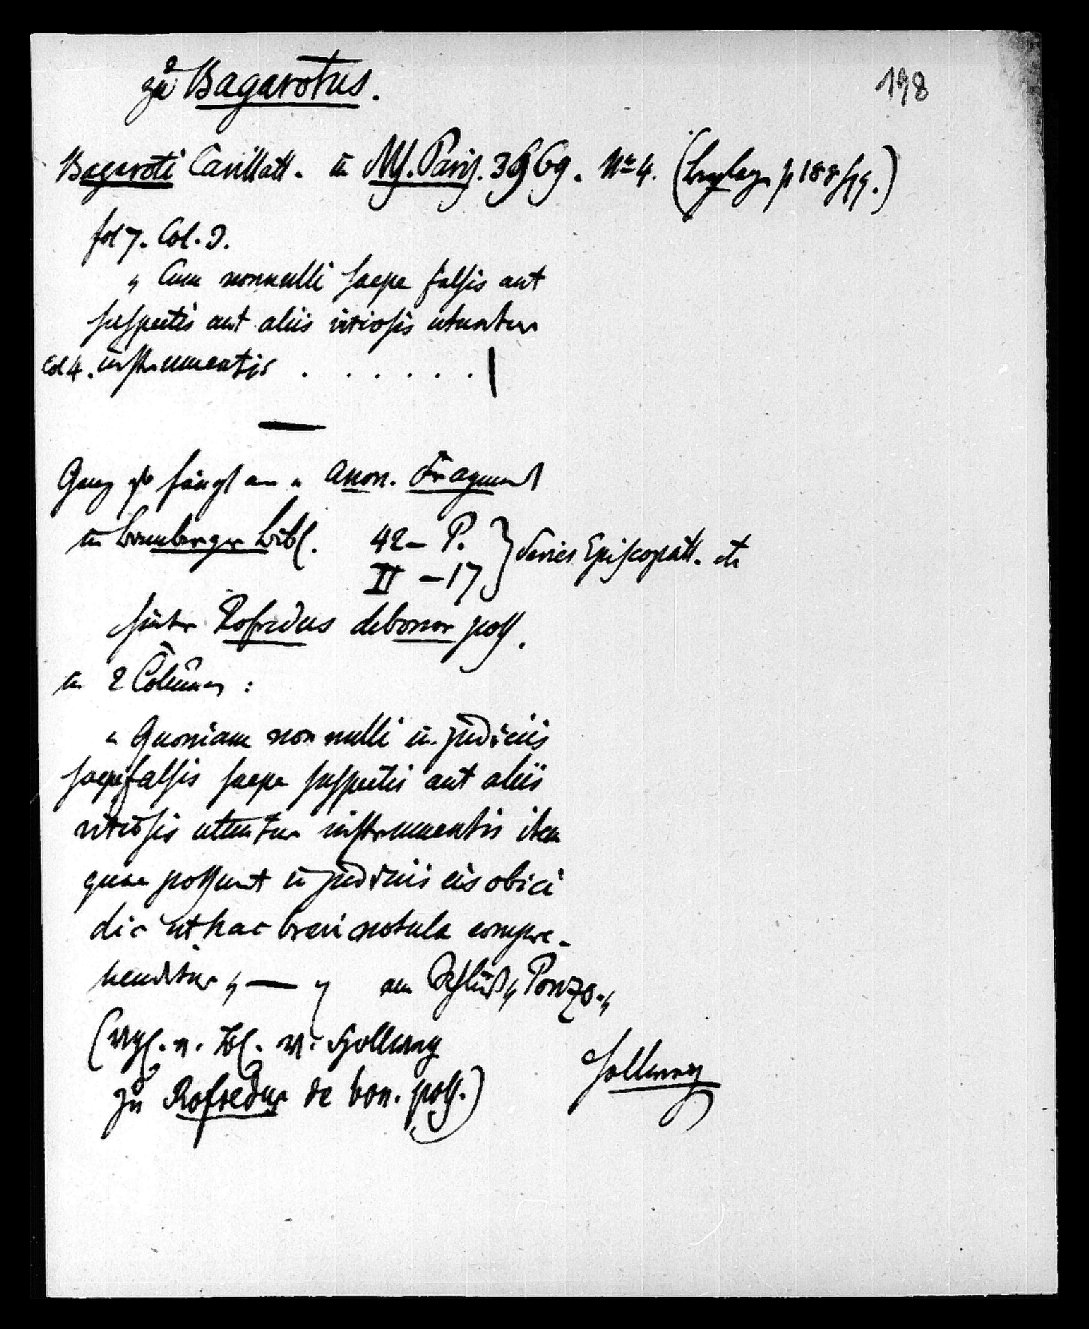 zu Bagarotus.
198
Bagaroti Cavillatt. in MS. Paris. 3969. No 4. (p 188 sqq.)
fol 7. Col. 3.
„ Cum nonnulli saepe falsis aut
suspectis aut aliis vitiosis utuntur
Col 4. instrumentis . . . . . . |
—
Ganz so fängt an „ Anon. Fragment
in Bamberger Bibl. 42 – P.
II – 17 } Series Episcopatt. etc
hinter Rofredus de bonor poss.
in 2 Columnen :
„ Quoniam non nulli in judiciis
saepe falsis saepe suspectis aut aliis
vitiosis utuntur instrumentis item
quae possunt in judiciis eis obici
dic ut hac brevi notula compre-
henditur „ — „ am Schluß „ Ponzo. „
(vgl. m. Bl. v. Hollweg
zu Rofredus de bon. poss.)
Hollweg